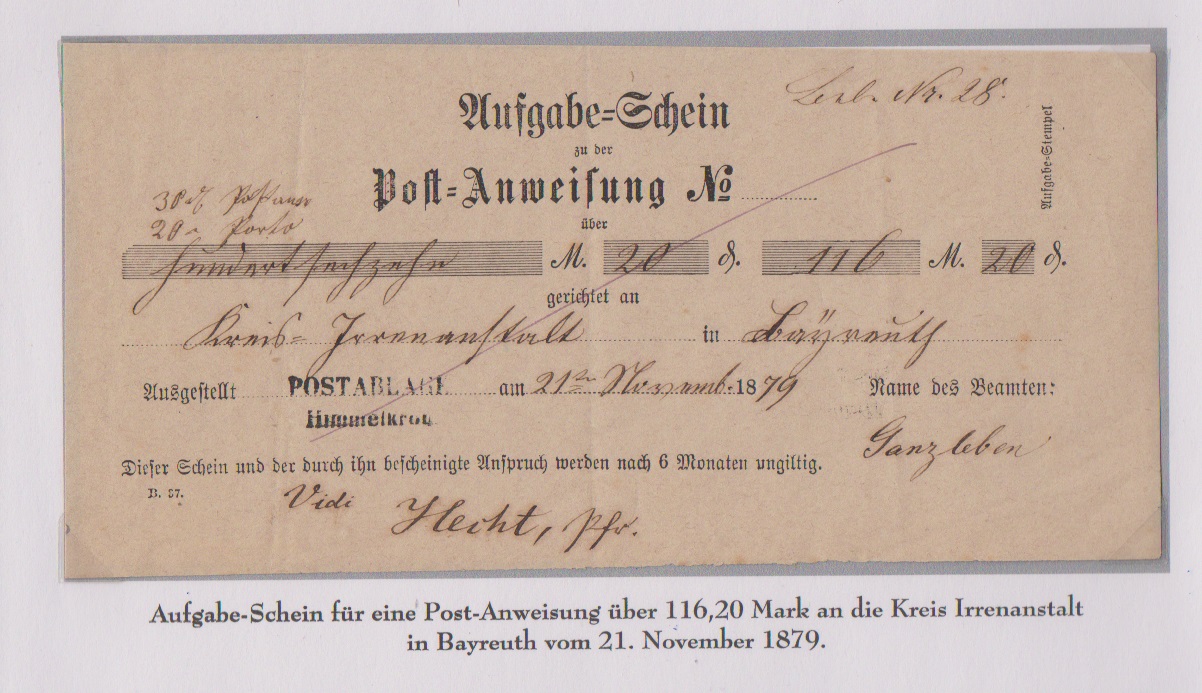 Beil. Nr. 28.
Aufgabe-Schein
Aufgabe-Stempel
zu der
Post-Anweisung No
30 ₰ Postanw
20 „ Porto
über
hundertsechzehn M. 20 ₰. 116 M. 20 ₰.
gerichtet an
Kreis-Irrenanstalt in Bayreuth
Ausgestellt POSTABLAGE am 21ten Novemb. 1879 Name des Beamten:
Himmelkron
Ganzleben
Dieser Schein und der durch ihn bescheinigte Anspruch werden nach 6 Monaten ungiltig.
B. 37.
Vidi
Hecht, Pfr.
Aufgabe-Schein für eine Post-Anweisung über 116,20 Mark an die Kreis Irrenanstalt
in Bayreuth vom 21. November 1879.